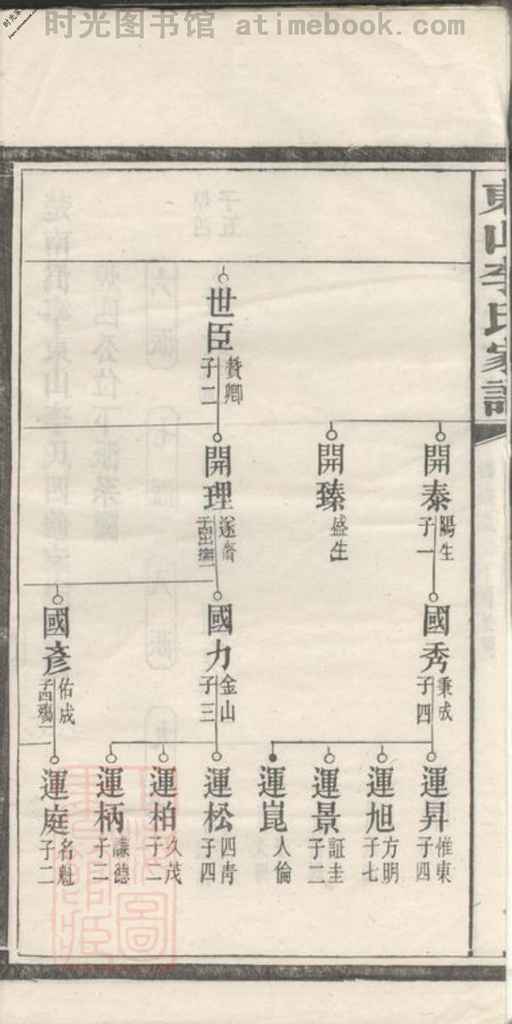 时光图书馆 atimebook.com
東山李氏家譜
世臣
贊卿
子二
開泰
陽生
子一
開臻
盛生
開理
國秀
秉成
子四
國力
金山
子三
國彥
佑成
運昇
惟東
子四
運旭
方明
子七
運景
証圭
子二
運崑
人倫
運松
四青
子四
運柏
久茂
子二
運柄
謙德
子二
運庭
名魁
子二